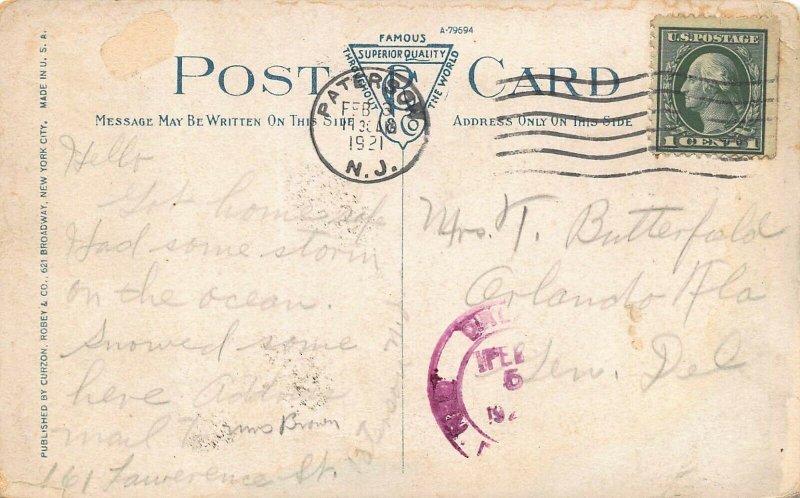 A-79694
FAMOUS
SUPERIOR QUALITY
THROUGHOUT THE WORLD
POST CARD
MESSAGE MAY BE WRITTEN ON THIS SIDE
ADDRESS ONLY ON THIS SIDE
U.S. POSTAGE
1 CENT 1
PATERSON
FEB 3
1921
N.J.
PUBLISHED BY CURZON, ROBEY & CO., 621 BROADWAY, NEW YORK CITY. MADE IN U.S.A.
Hello
Got home safe
Had some storm
on the ocean.
Snowed some
here Address
mail to Mrs Brown
161 Lawerence St.
Mrs. T. Butterfield
Orlando Fla
Gen. Del
FEB
5